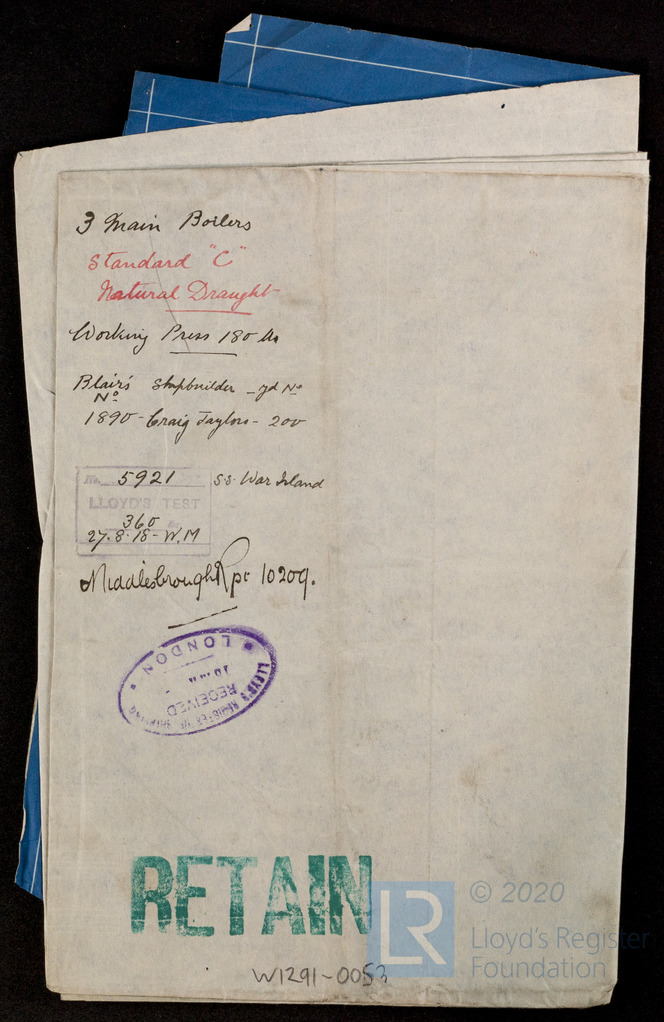 3 Main Boilers
Standard "C"
Natural Draught
Working Press 180 lbs
Blair's Shipbuilder - yd No
No
1890 - Craig Taylors - 200
No. 5921 S.S. War Island
LLOYD'S TEST
360
27.8.18 - W.M
Middlesbrough Rpt 10209.
LLOYD'S REGISTER OF SHIPPING
RECEIVED
LONDON
RETAIN
LR
© 2020
Lloyd's Register
Foundation
W1291-0053